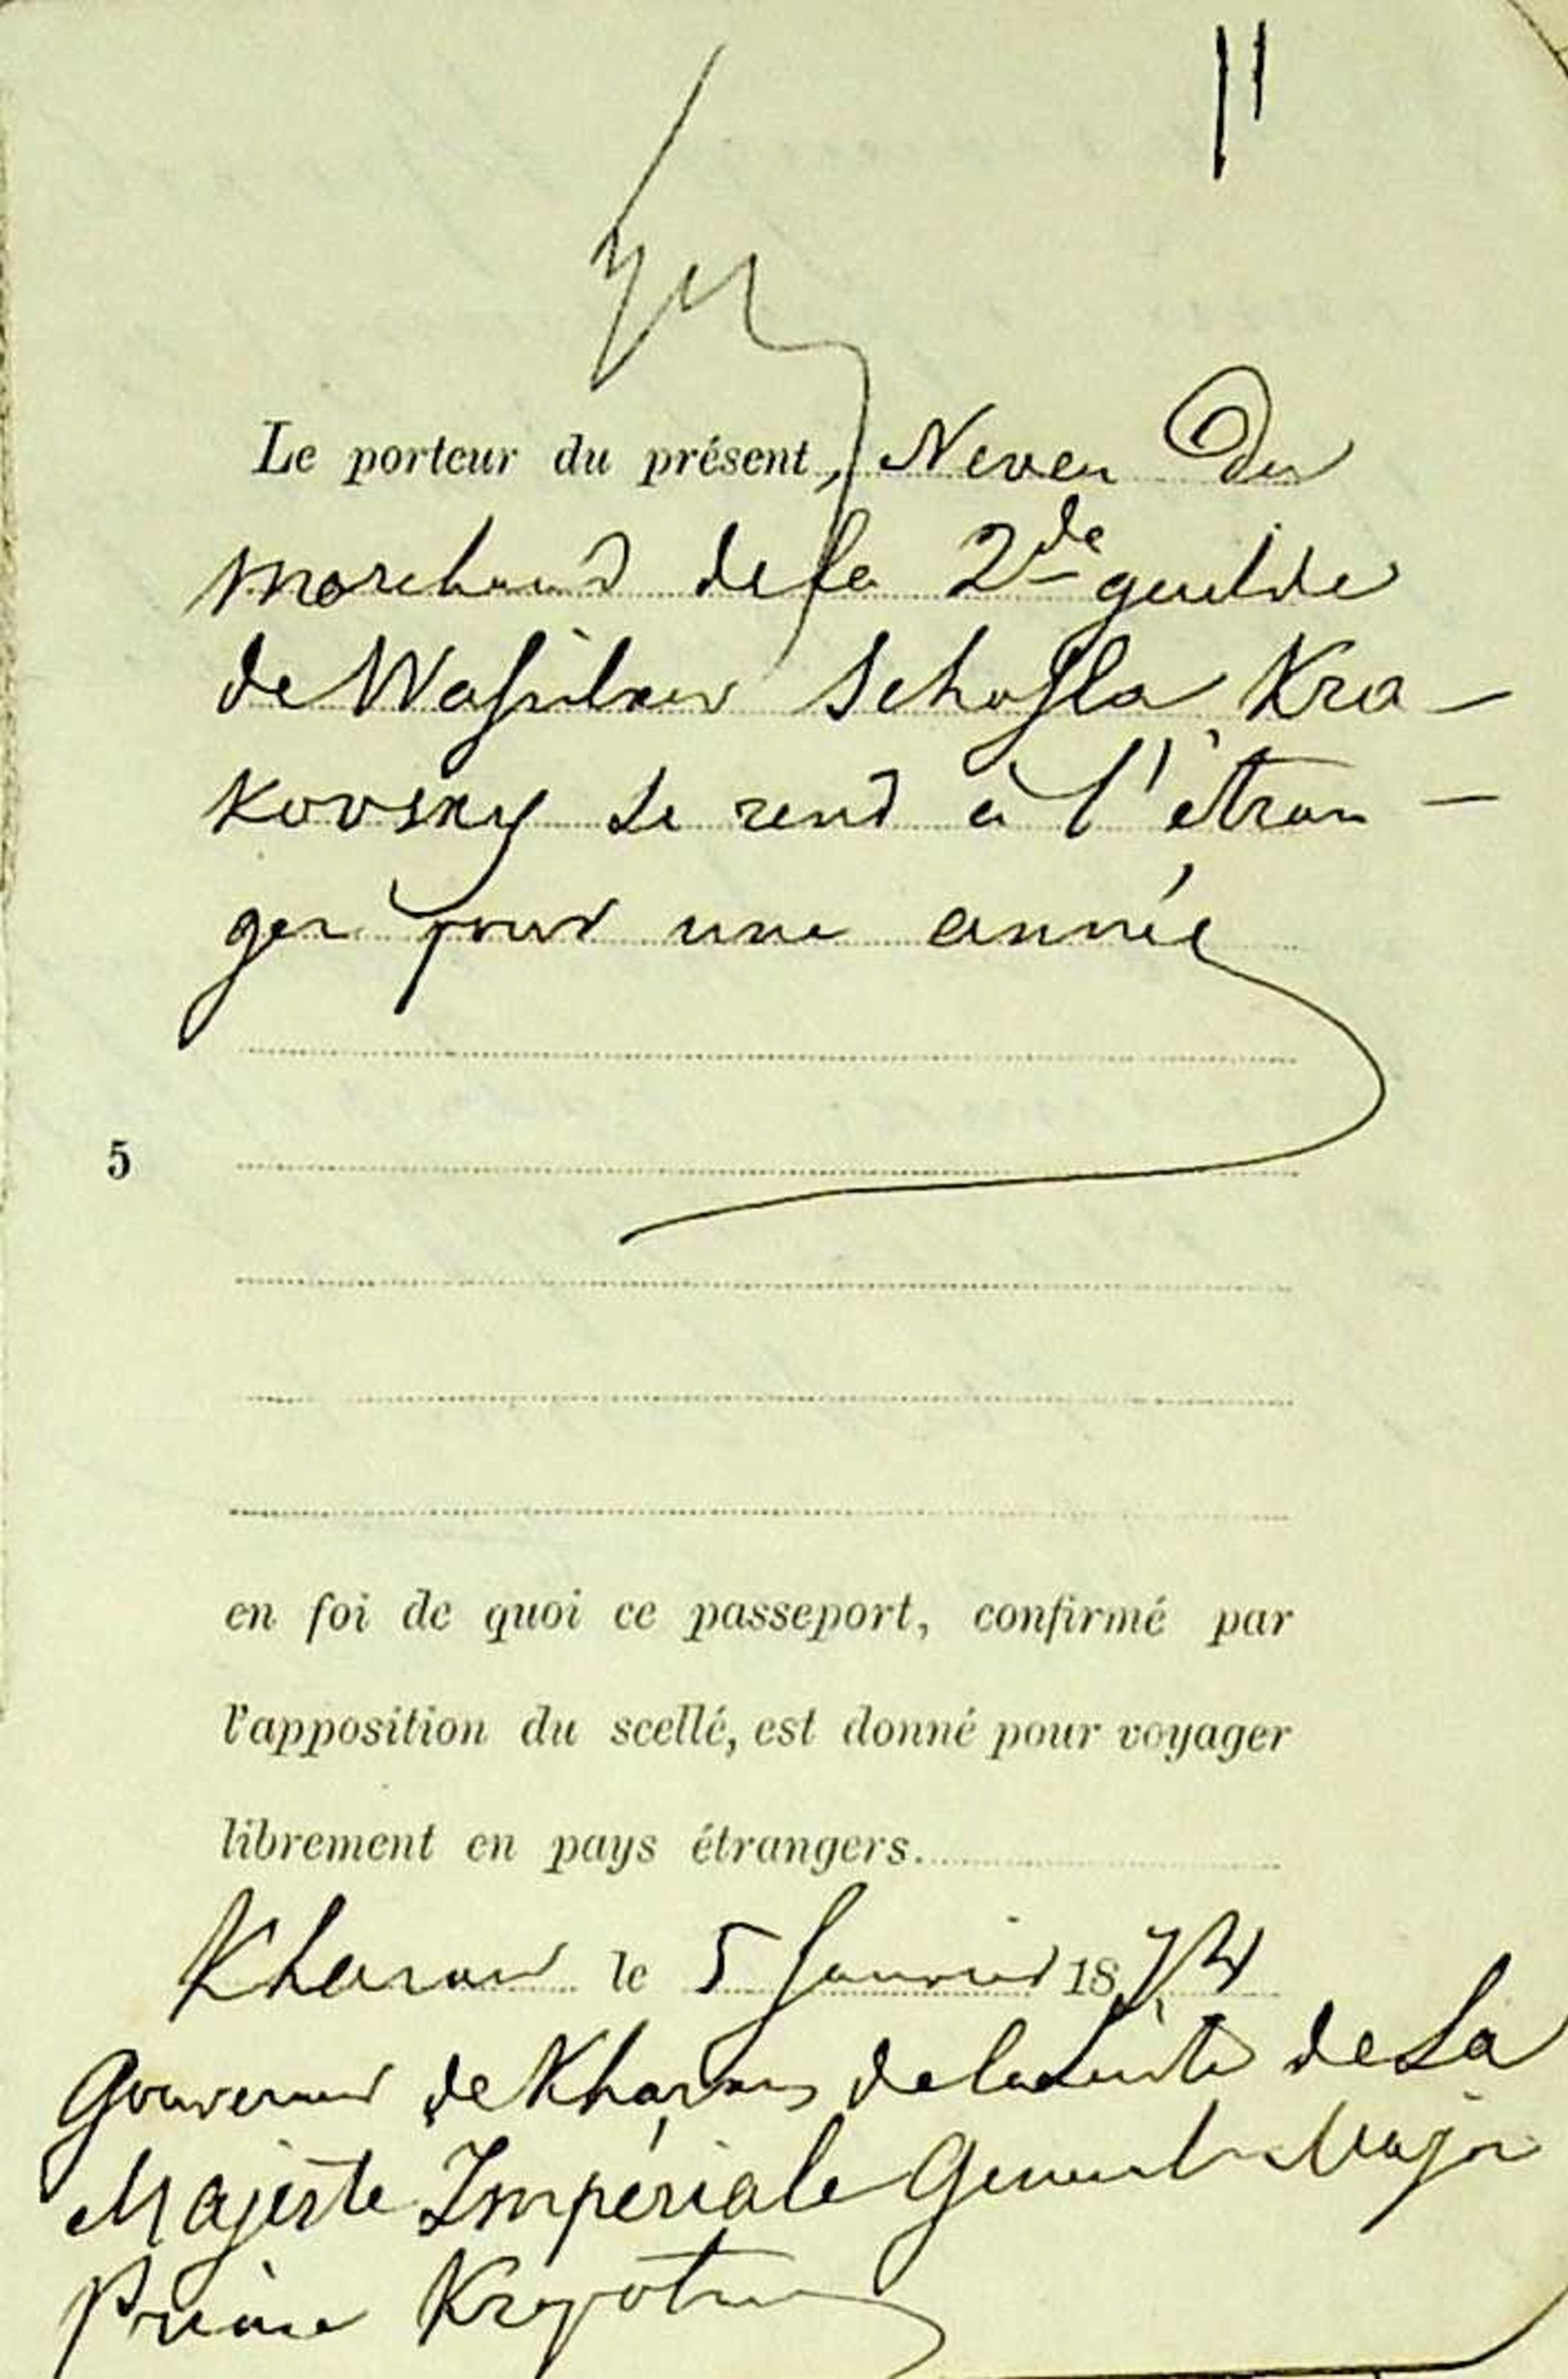 Le porteur du présent, Neveu du
marchand de la 2de guilde
de Wassilkow Schossla Kra-
kovsky se rend à l'étran-
ger pour une année
5
en foi de quoi ce passeport, confirmé par
l'apposition du scellé, est donné pour voyager
librement en pays étrangers.
Kharkow le 5 Janvier 1874
Gouverneur de Kharkow de la Suite de Sa
Majesté Impériale General-Major
Prince Krapotkine